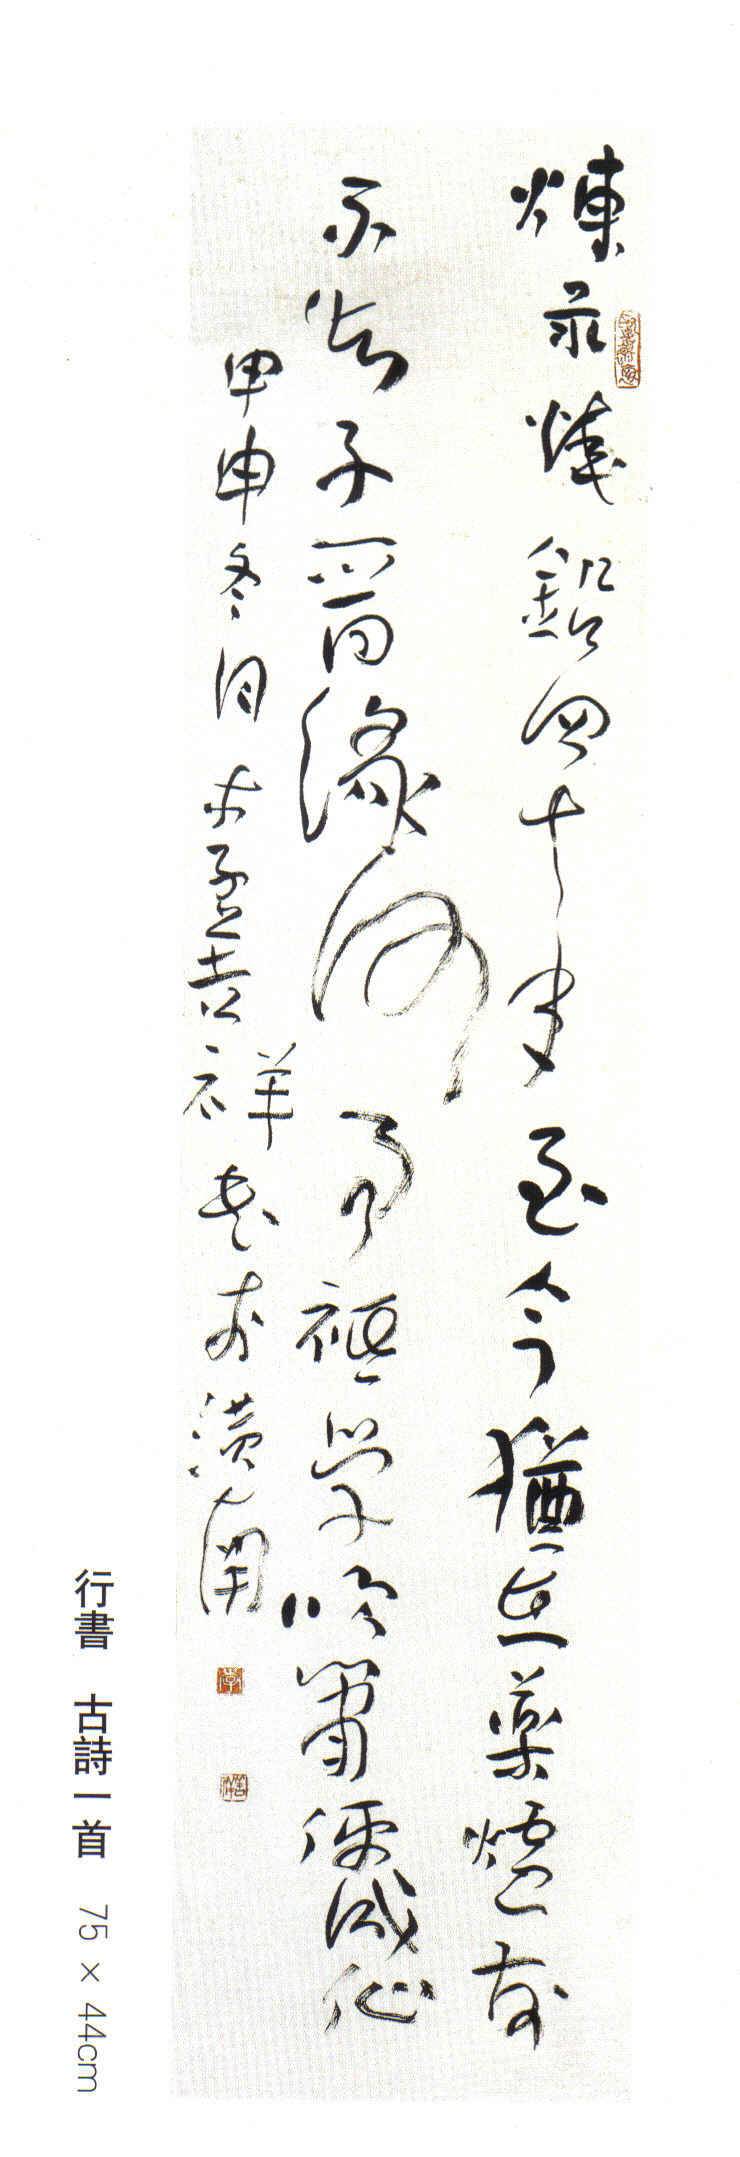 煉汞燒鉛四十年至今猶在藥爐前
不知子晉緣何事祇學吹簫便成仙
甲申冬月孟吉祥
行書 古詩一首 75 × 44cm